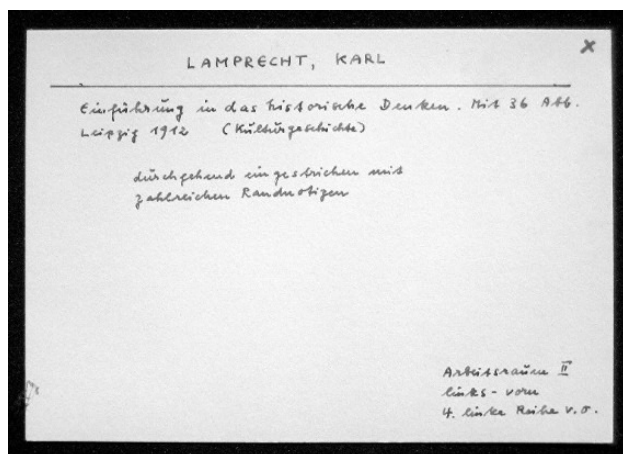 LAMPRECHT, KARL
x
Einführung in das historische Denken. Mit 36 Abb.
Leipzig 1912 (Kulturgeschichte)
durchgehend eingestrichen mit
zahlreichen Randnotizen
Arbeitsraum II
links - vorn
4. linke Reihe v. o.